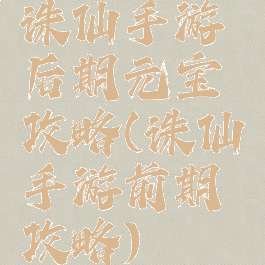 诛仙手游
后期元宝
攻略(诛仙
手游前期
攻略)